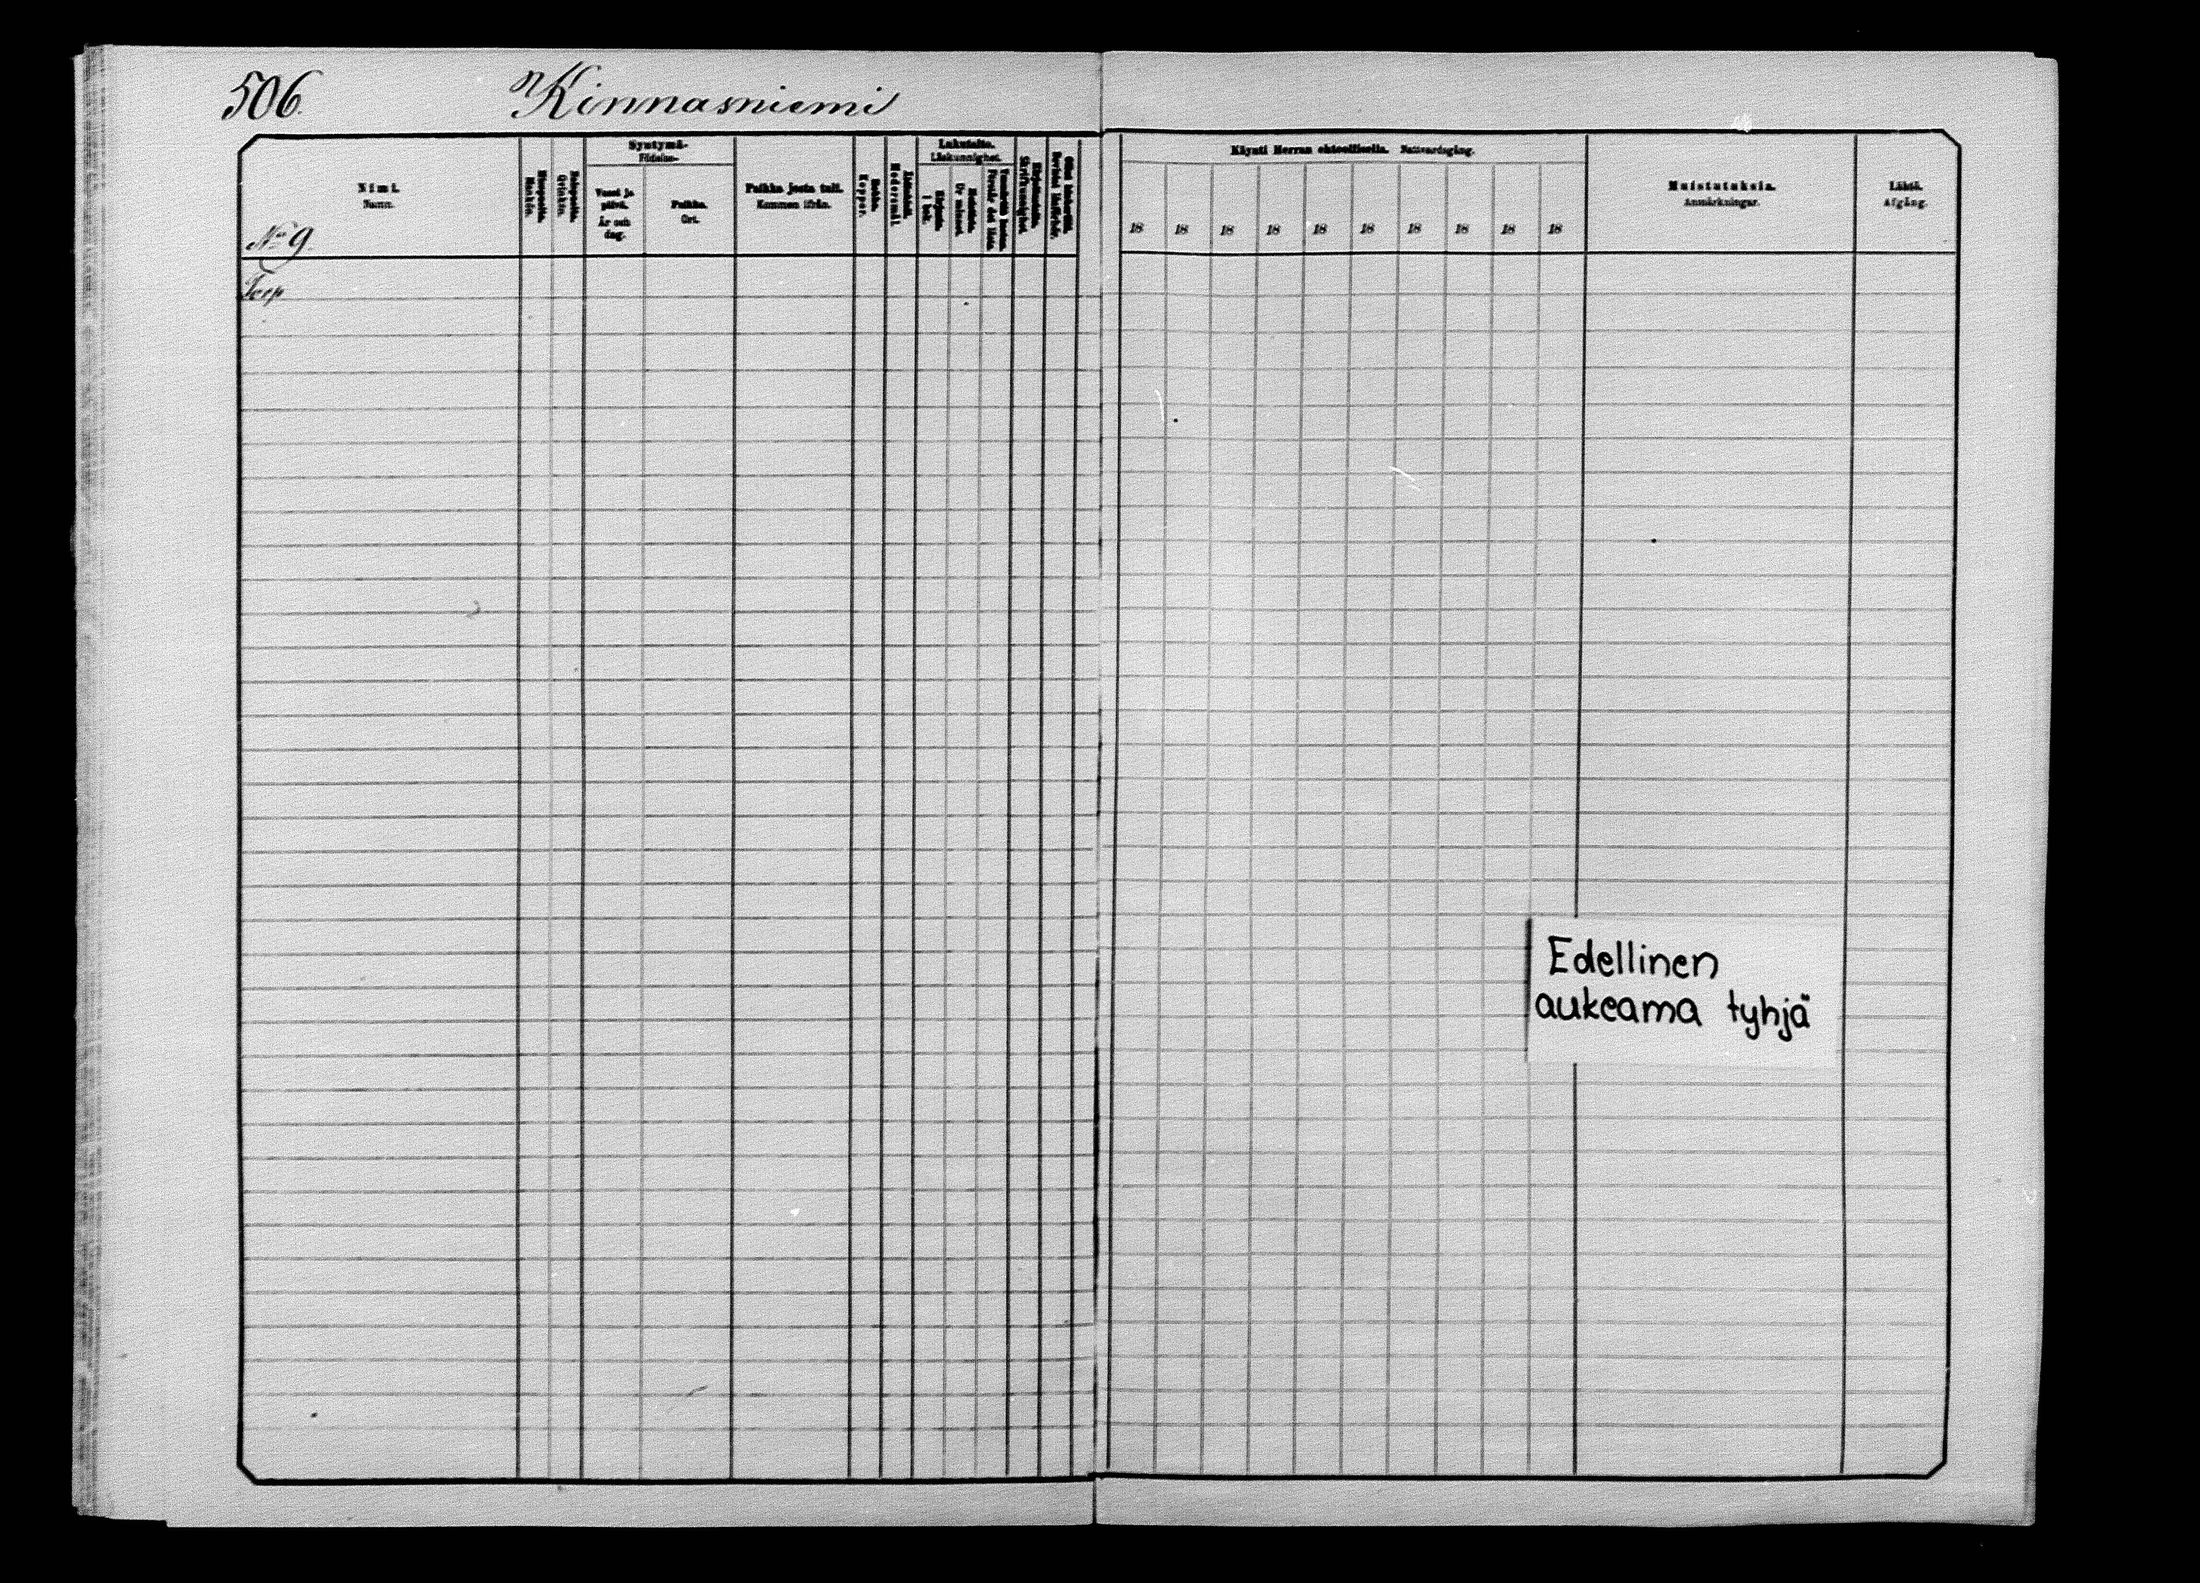 506.
Kinnasniemi
Nimi.
Namn.
No 9
Miespuolia.
Mankön.
Vaimopuolia.
Qvinkön.
Syntymä-
Födelse-
Vuosi ja
päivä.
År och
dag.
Paikka.
Ort.
Paikka josta tuli.
Kommen ifrån.
Rokko.
Koppor.
Lukutaito.
Läskunnighet.
Kirjasta.
I bok.
Kirjoitustaito.
Skrifkunnighet.
Käynti Herran ehtoollisella. Nattvardsgång.
18 18 18 18 18 18 18 18 18 18
Muistutuksia.
Anmärkningar.
Lähtö.
Afgång.
Torp
Edellinen
aukeama tyhjä